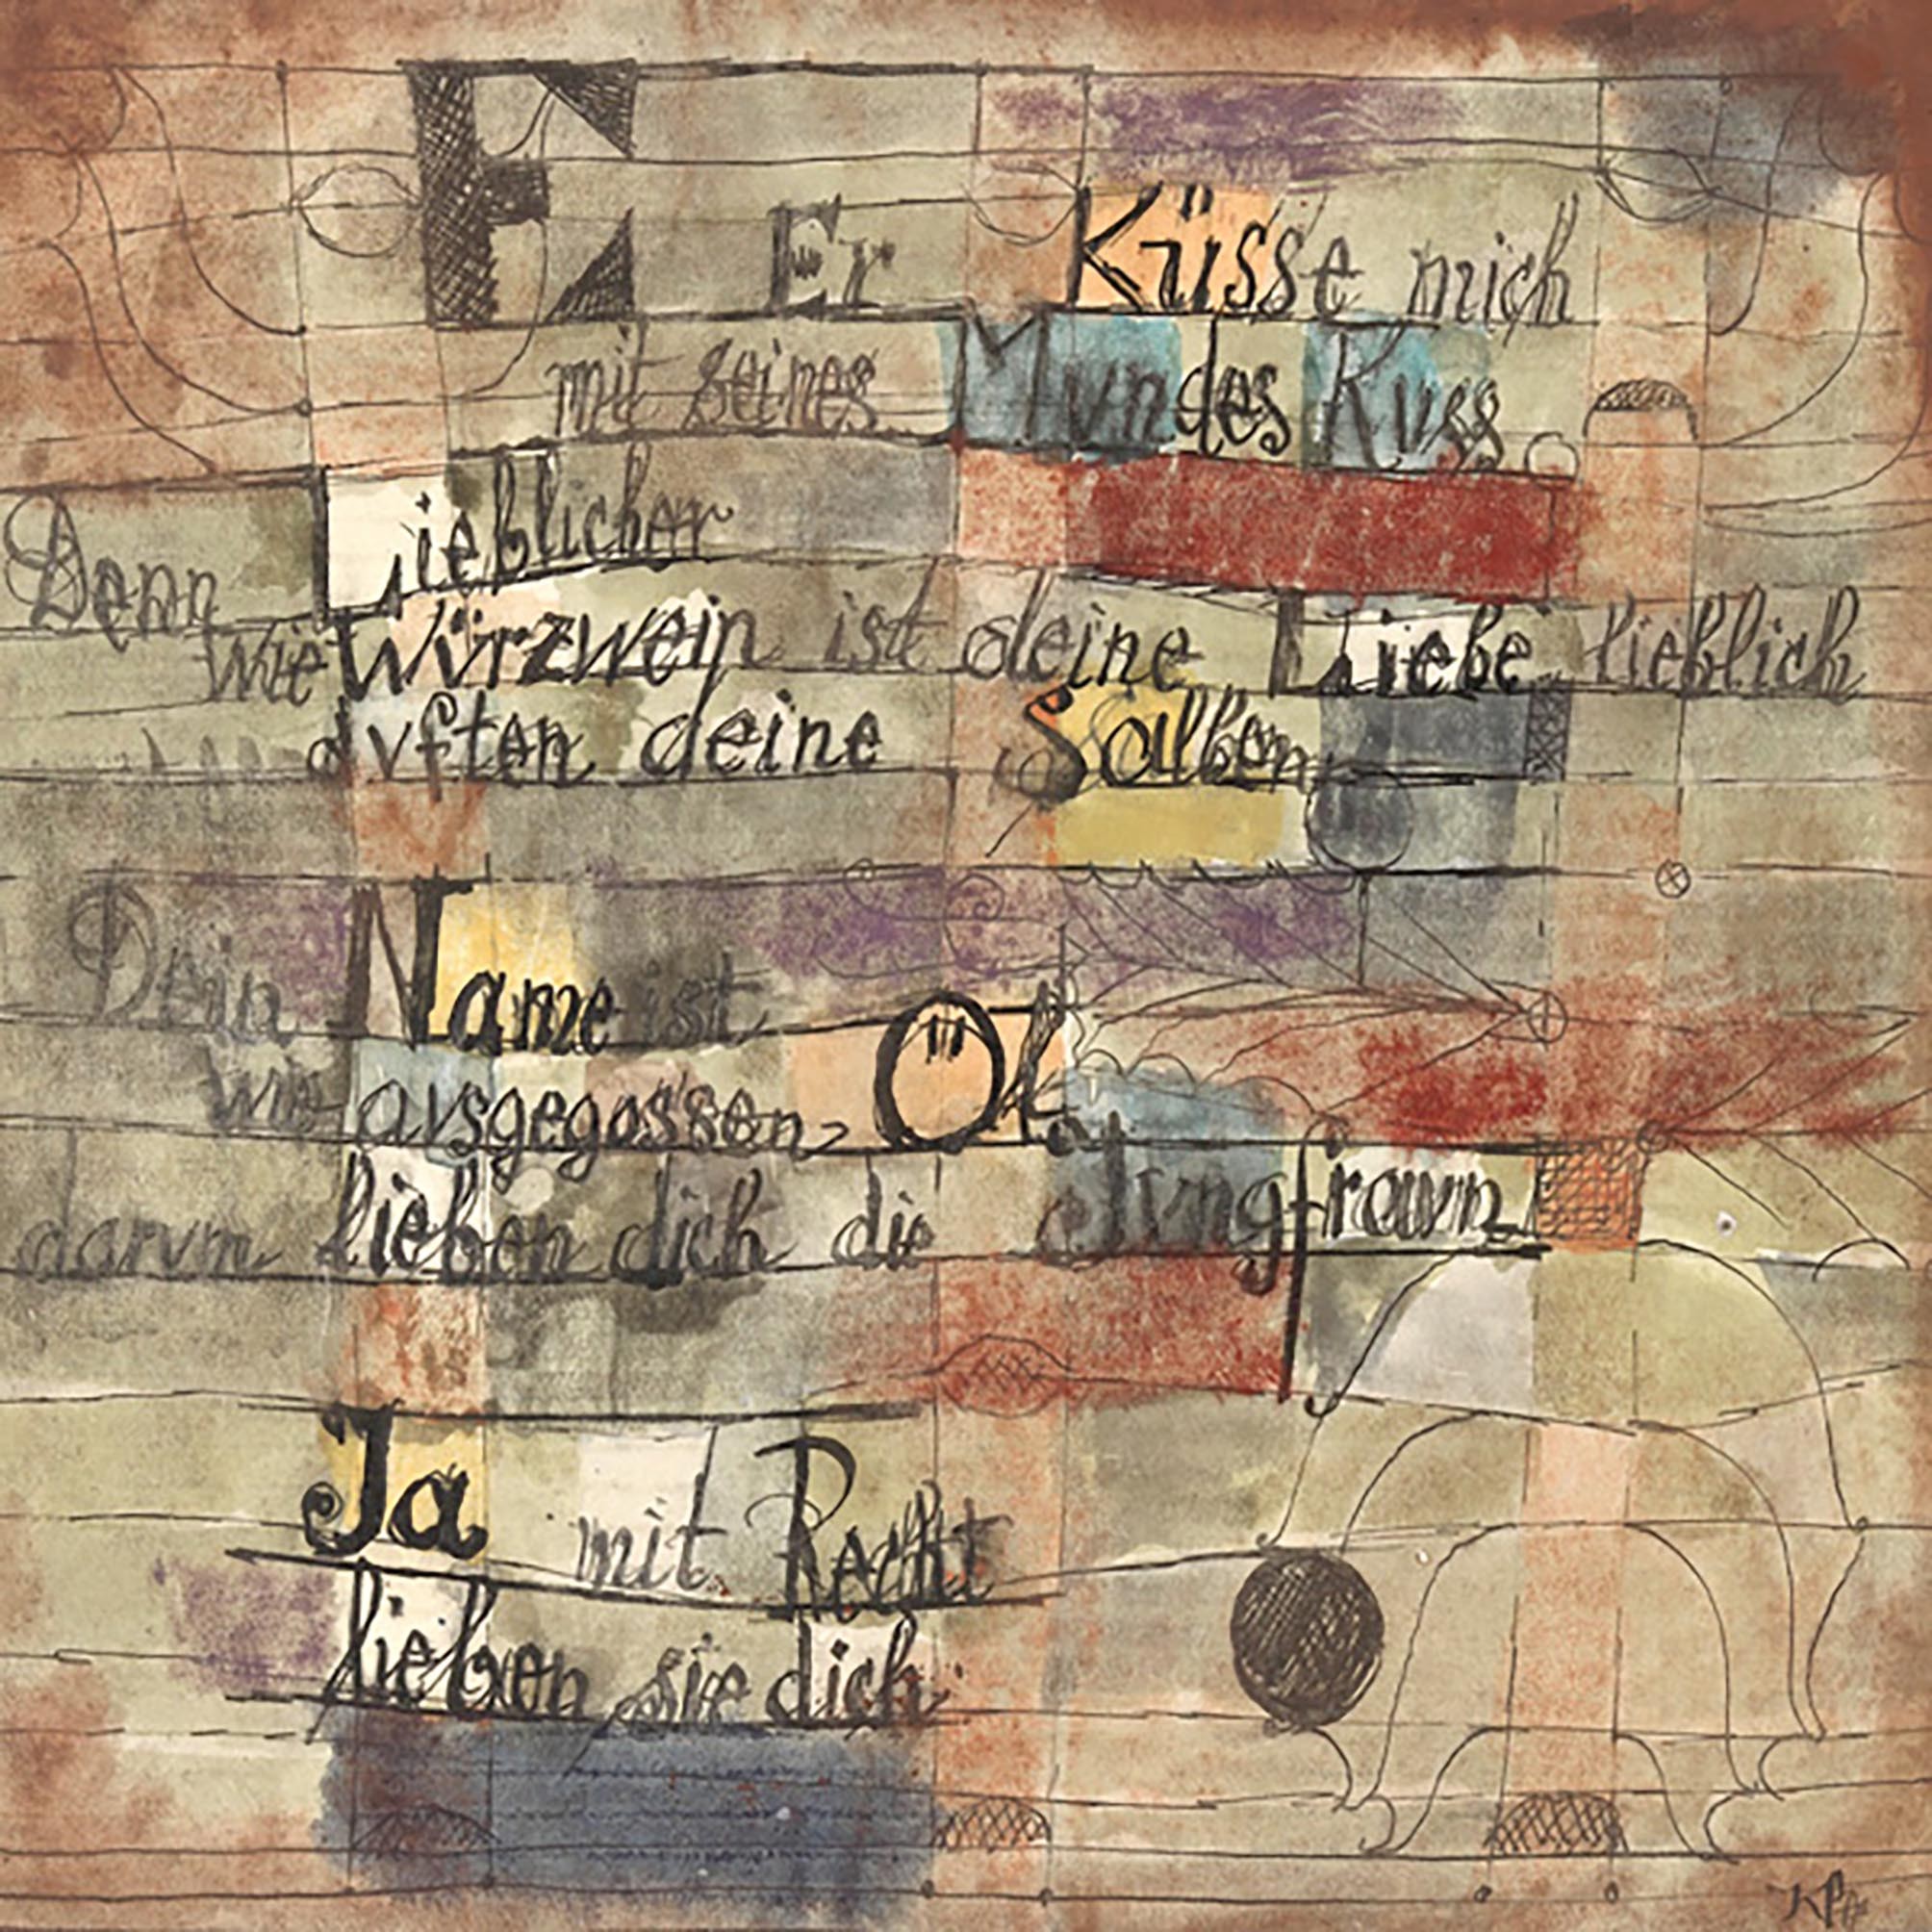 E Er Küsse mich
mit seines Mundes Kuss.
Denn Lieblicher
wie Würzwein ist deine Liebe lieblich
duften deine Salben,
Dein Name ist
wie ausgegossen Öl.
darum lieben dich die Jungfraun
Ja mit Recht
lieben sie dich.
Klee